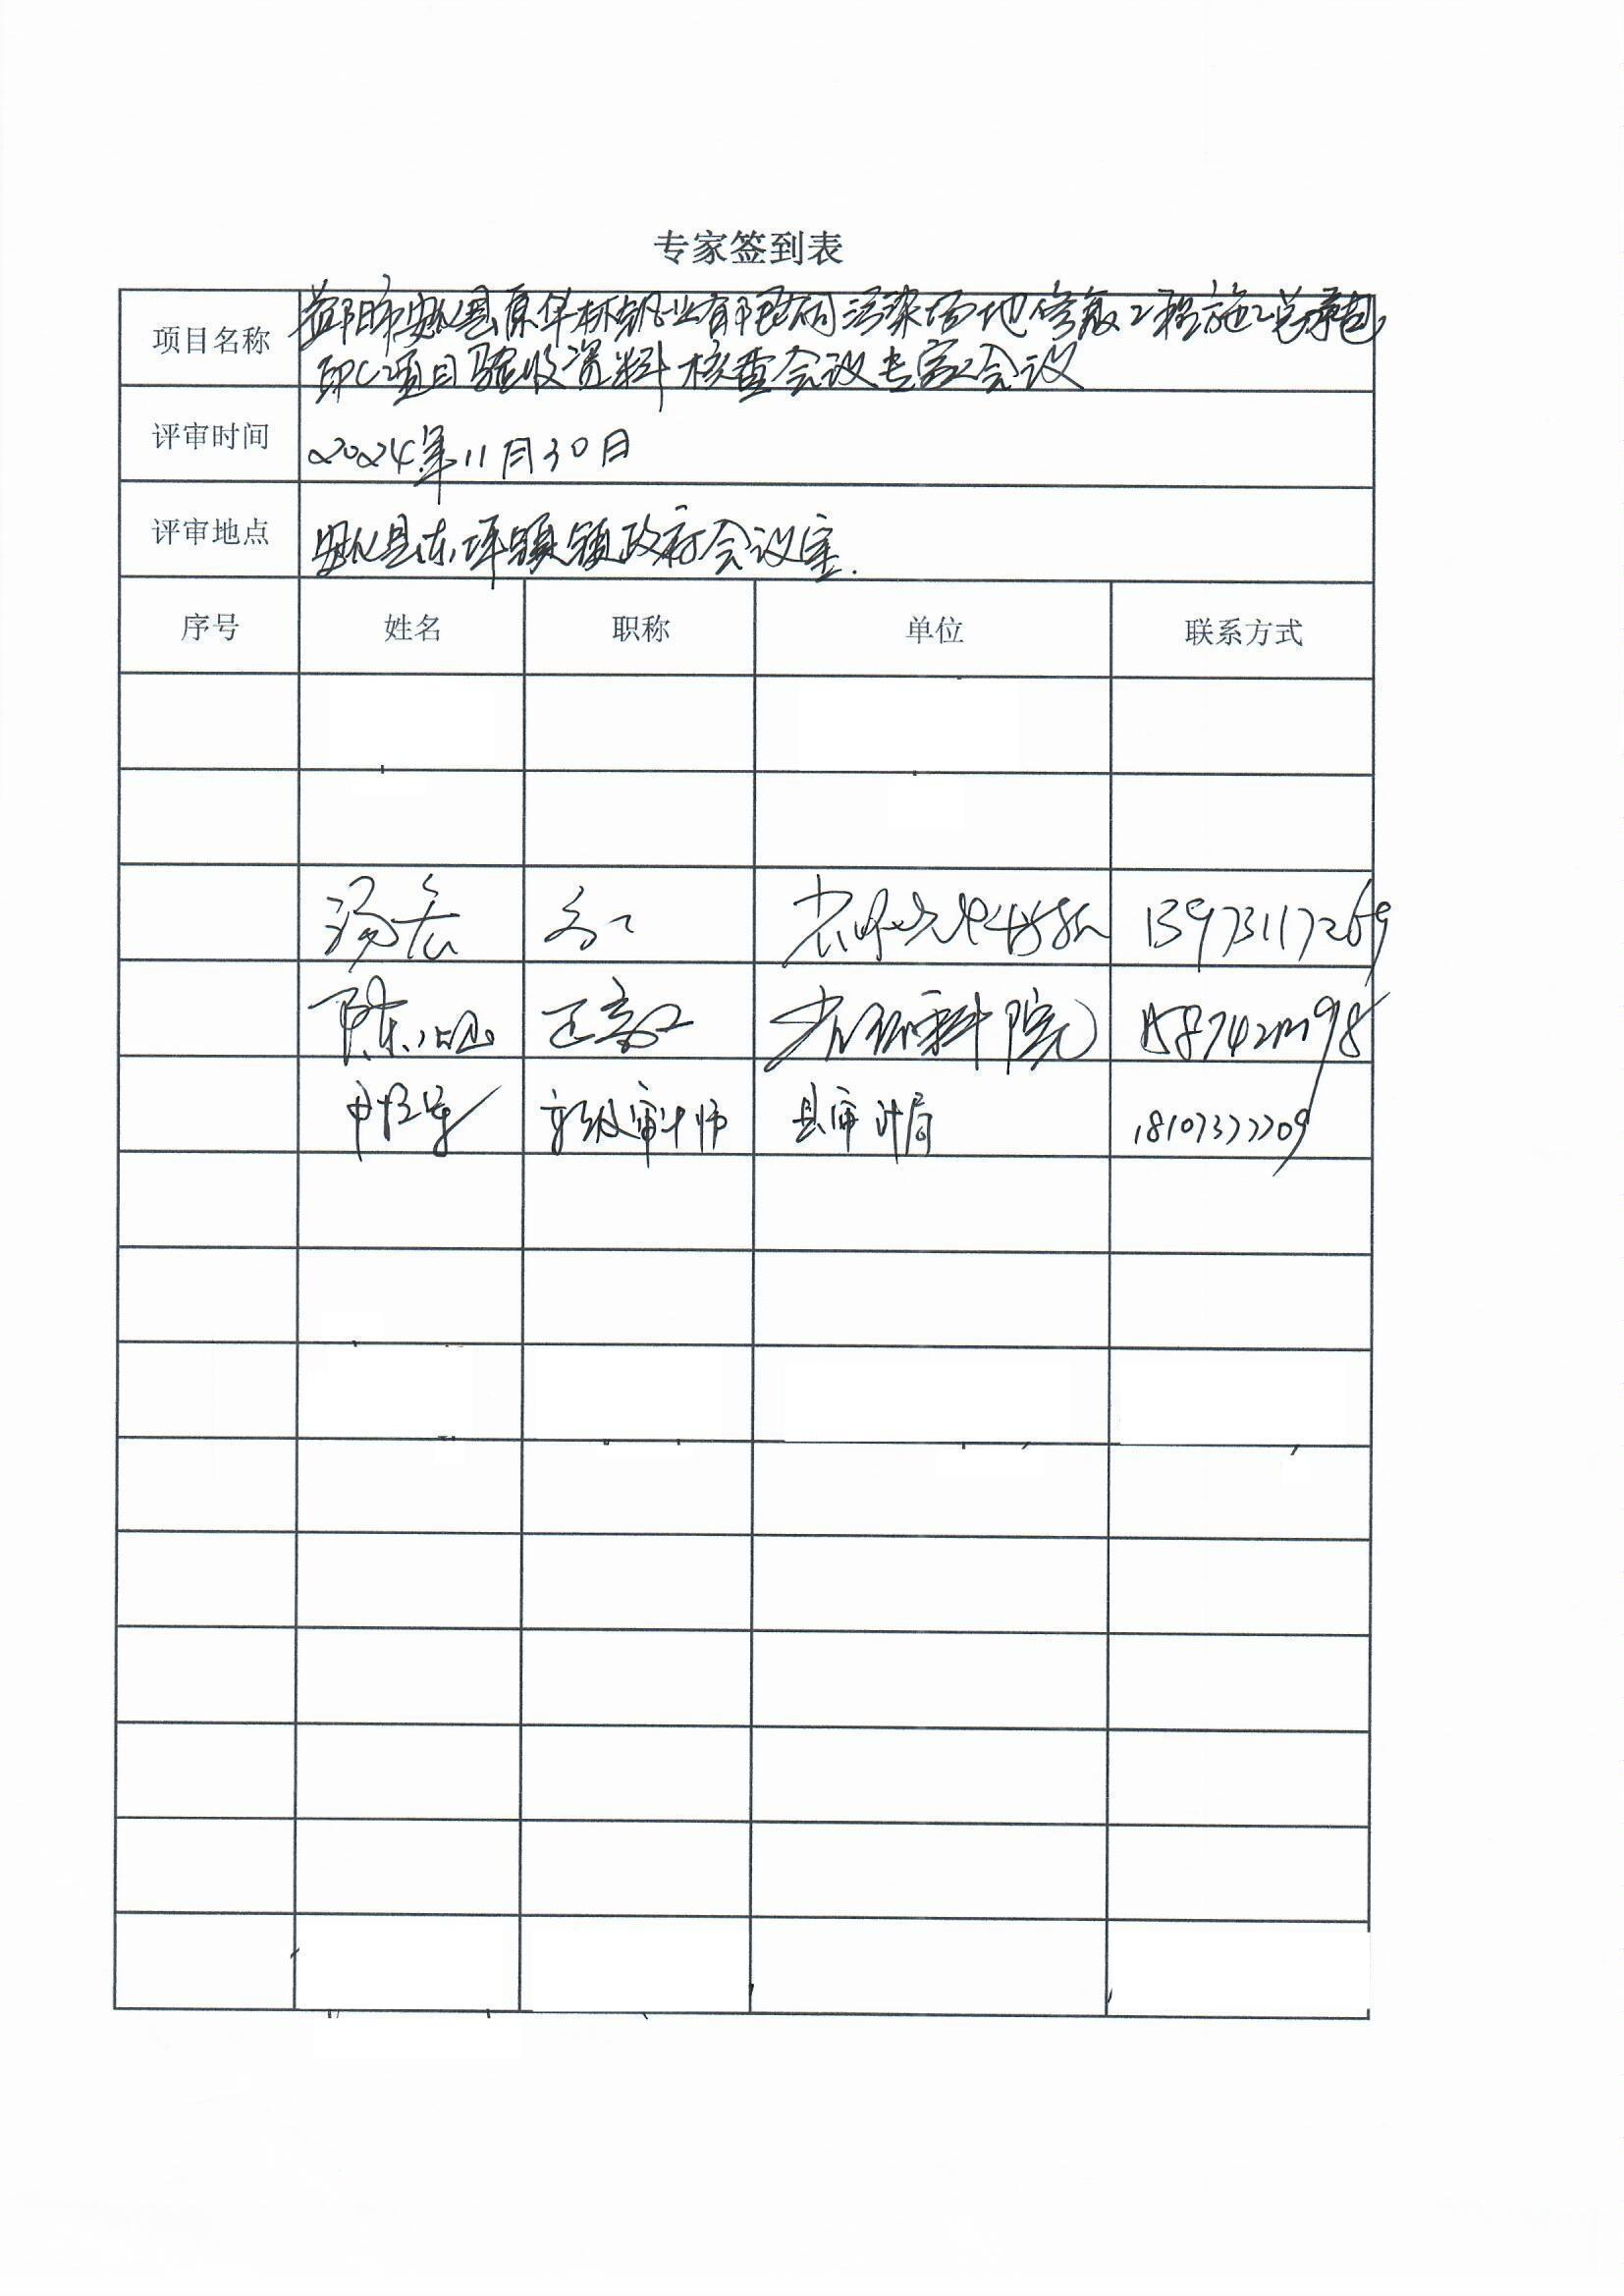 专家签到表
项目名称 益阳市安化县原华林钒业有限公司污染场地修复工程施工总承包
EPC项目验收资料核查会议专家会议
评审时间 2024年11月30日
评审地点 安化县东坪镇镇政府会议室.
序号 姓名 职称 单位 联系方式
汤宏 高工 13973117269
陈 正高工 省环科院
申 高级审计师 县审计局 18107377209